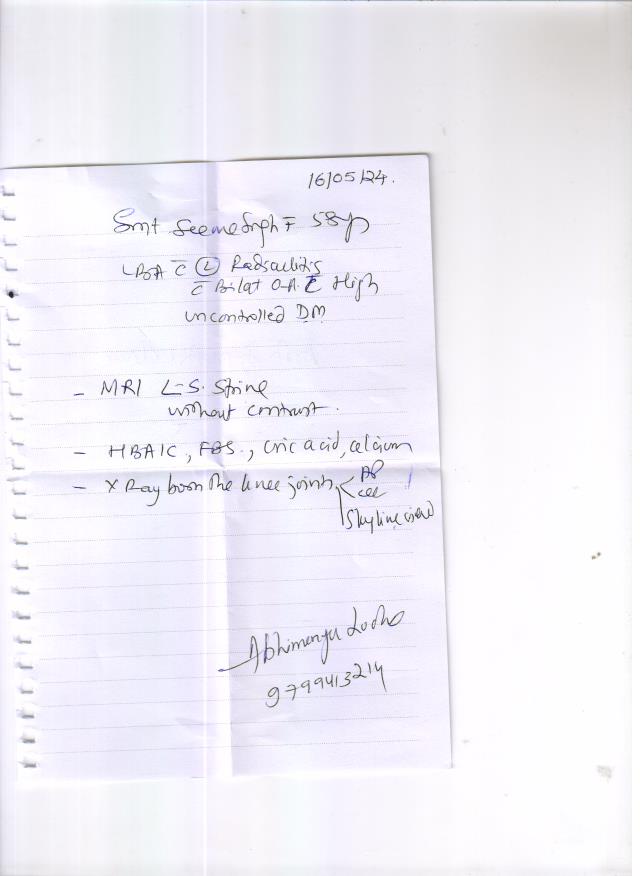 16/05/24.
Smt Seema Singh F 58yr
LBA c̄ Ⓛ Radiculitis
c̄ Bilat O.A. c̄ High
uncontrolled DM
- MRI L-S. Spine
without contrast.
- HBAIC, FBS., Uric acid, calcium
- X Ray both the knee joints AP
Skyline view
Abhimanyu
9799413214